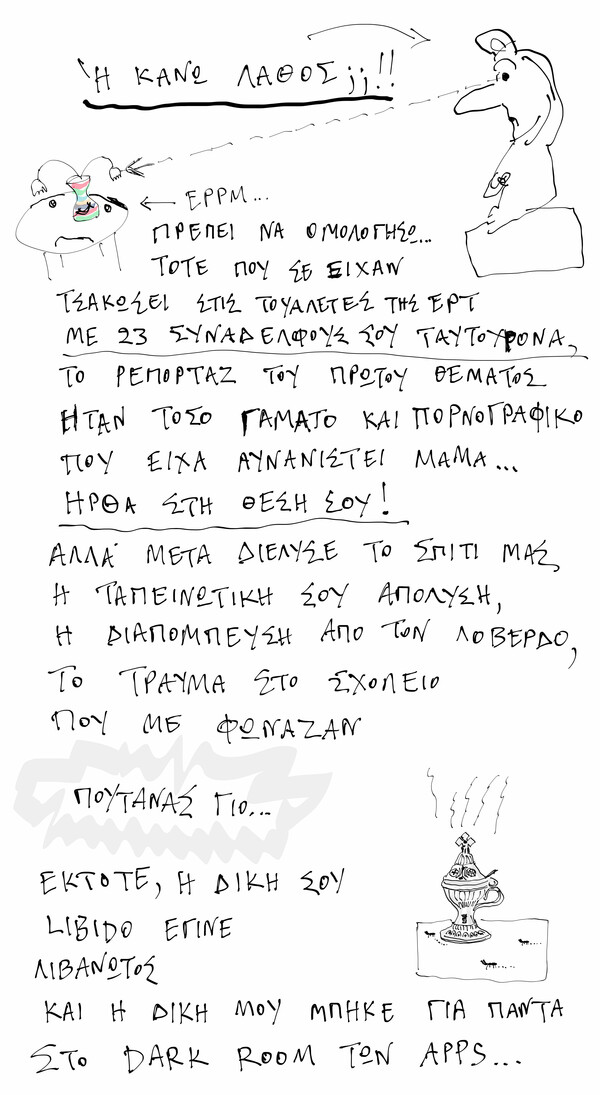 Ή ΚΑΝΩ ΛΑΘΟΣ ¡¡!!
← ΕΡΡΜ...
ΠΡΕΠΕΙ ΝΑ ΟΜΟΛΟΓΗΣΩ...
ΤΟΤΕ ΠΟΥ ΣΕ ΕΙΧΑΝ
ΤΣΑΚΩΣΕΙ ΣΤΙΣ ΤΟΥΑΛΕΤΕΣ ΤΗΣ ΕΡΤ
ΜΕ 23 ΣΥΝΑΔΕΛΦΟΥΣ ΣΟΥ ΤΑΥΤΟΥΡΟΝΑ,
ΤΟ ΡΕΠΟΡΤΑΖ ΤΟΥ ΠΡΩΤΟΥ ΘΕΜΑΤΟΣ
ΗΤΑΝ ΤΟΣΟ ΓΑΜΑΤΟ ΚΑΙ ΠΟΡΝΟΓΡΑΦΙΚΟ
ΠΟΥ ΕΙΧΑ ΑΥΝΑΝΙΣΤΕΙ ΜΑΜΑ...
ΗΡΘΑ ΣΤΗ ΘΕΣΗ ΣΟΥ!
ΑΛΛΑ ΜΕΤΑ ΔΙΕΛΥΣΕ ΤΟ ΣΠΙΤΙ ΜΑΣ
Η ΤΑΠΕΙΝΩΤΙΚΗ ΣΟΥ ΑΠΟΛΥΣΗ,
Η ΔΙΑΠΟΜΠΕΥΣΗ ΑΠΟ ΤΟΝ ΛΟΒΕΡΔΟ,
ΤΟ ΤΡΑΥΜΑ ΣΤΟ ΣΧΟΛΕΙΟ
ΠΟΥ ΜΕ ΦΩΝΑΖΑΝ
ΠΟΥΤΑΝΑΣ ΓΙΟ...
ΕΚΤΟΤΕ, Η ΔΙΚΗ ΣΟΥ
LIBIDO ΕΓΙΝΕ
ΛΙΒΑΝΩΤΟΣ
ΚΑΙ Η ΔΙΚΗ ΜΟΥ ΜΠΗΚΕ ΓΙΑ ΠΑΝΤΑ
ΣΤΟ DARK ROOM ΤΩΝ APPS...